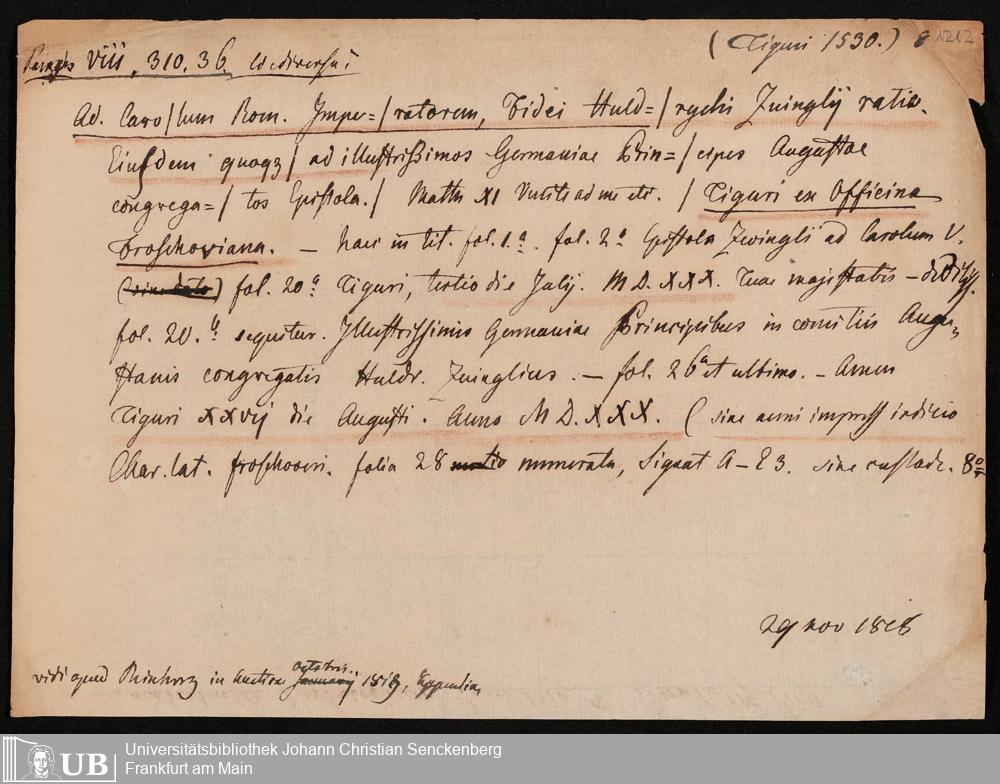 (Tiguri 1530.) 8 1212
Panzer VIII, 310. 36
Ad. Caro/lum Rom. Impe-=/ratorem, Fidei Huld=/rychi Zuinglij ratio.
Eiusdem quoqz/ ad illustrissimos Germaniae Prin=/cipes Augustae
congrega=/tos Epistola./ Matth XI Venite ad me etc. / Tiguri ex Officina
Froschoviana. — Haec in tit. fol. 1.a. fol. 2a Epistola Zwingli ad Carolum V.
(sine dato) fol. 20.a Tiguri, tertio die Julij. MD.XXX. Tuae majestatis — dediss.
fol. 20.b sequitur. Illustrissimis Germaniae Principibus in comitiis Augu„
stanis congregatis Huldr. Zuinglius. — fol. 26a et ultimo. — Amen
Tiguri XXvij die Augusti. Anno MD.XXX. (sine anni impress indicio
Char. lat. froschovi. folia 28 numerata, Signat A–E3. sine custod. 8o
29 nov 1818
vidi apud in Auctione octobris 1818, Appendia,